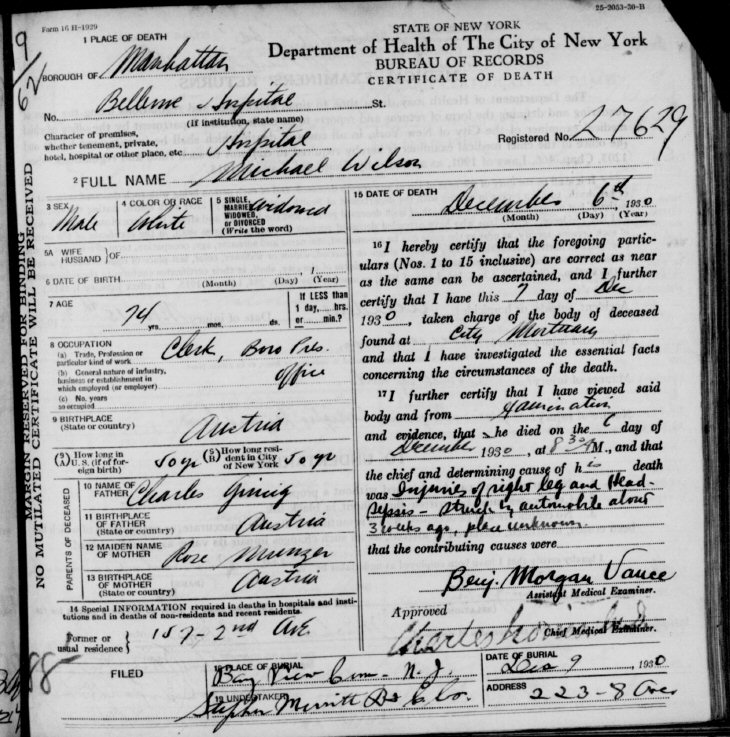 Form 16 H-1929
25-2053-30-B
STATE OF NEW YORK
Department of Health of The City of New York
BUREAU OF RECORDS
CERTIFICATE OF DEATH
9/62
1 PLACE OF DEATH
BOROUGH OF Manhattan
No. Bellevue Hospital St.
(If institution, state name)
Character of premises,
whether tenement, private,
hotel, hospital or other place, etc. Hospital
Registered No. 27629
2 FULL NAME Michael Wilson
MARGIN RESERVED FOR BINDING
NO MUTILATED CERTIFICATE WILL BE RECEIVED
3 SEX Male
4 COLOR OR RACE White
5 SINGLE, MARRIED, WIDOWED, or DIVORCED (Write the word) Widowed
5A WIFE HUSBAND } OF
6 DATE OF BIRTH (Month) (Day) (Year)
7 AGE 74 yrs. mos. ds.
If LESS than
1 day, hrs.
or min.?
8 OCCUPATION
(a) Trade, Profession or
particular kind of work Clerk, Boro Pres.
(b) General nature of industry,
business or establishment in
which employed (or employer) office
(c) No. years
so occupied
9 BIRTHPLACE
(State or country) Austria
(9 A) How long in U. S. (if of foreign birth) 50 yr
(9 B) How long resident in City of New York 50 yr
PARENTS OF DECEASED
10 NAME OF
FATHER Charles
11 BIRTHPLACE
OF FATHER
(State or country) Austria
12 MAIDEN NAME
OF MOTHER Rose Munzer
13 BIRTHPLACE
OF MOTHER
(State or country) Austria
14 Special INFORMATION required in deaths in hospitals and insti-
tutions and in deaths of non-residents and recent residents.
Former or
usual residence } 157-2nd Ave
15 DATE OF DEATH December 6th, 1930
(Month) (Day) (Year)
16 I hereby certify that the foregoing partic-
ulars (Nos. 1 to 15 inclusive) are correct as near
as the same can be ascertained, and I further
certify that I have this 7 day of Dec
1930, taken charge of the body of deceased
found at City Mortuary
and that I have investigated the essential facts
concerning the circumstances of the death.
17 I further certify that I have viewed said
body and from examination
and evidence, that he died on the 6 day of
December 1930, at 8 30 M., and that
the chief and determining cause of his death
was Injuries of right leg and Head -
Sepsis - struck by automobile about
3 weeks ago, place unknown.
that the contributing causes were
Benj. Morgan Vance
Assistant Medical Examiner.
Approved
Charles Norris M.D.
Chief Medical Examiner.
88
FILED
18 PLACE OF BURIAL
Bay View Cem - N. J.
DATE OF BURIAL
Dec 9, 1930
19 UNDERTAKER
Stephen Merritt B & C Co.
ADDRESS
223-8 Ave